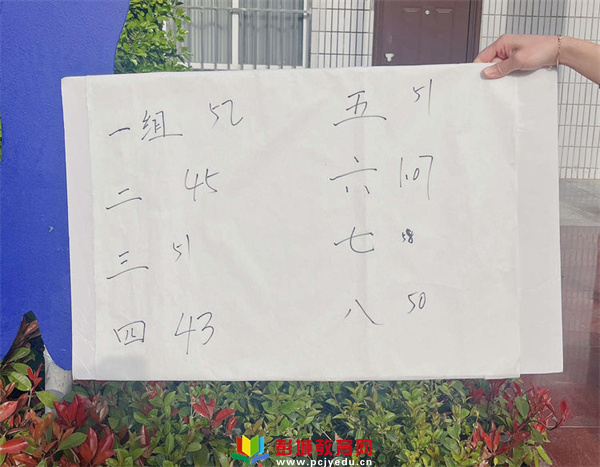 一组 52
二 45
三 51
四 43
五 51
六 1.07
七 58
八 50
彭城教育网
www.pcjyedu.cn